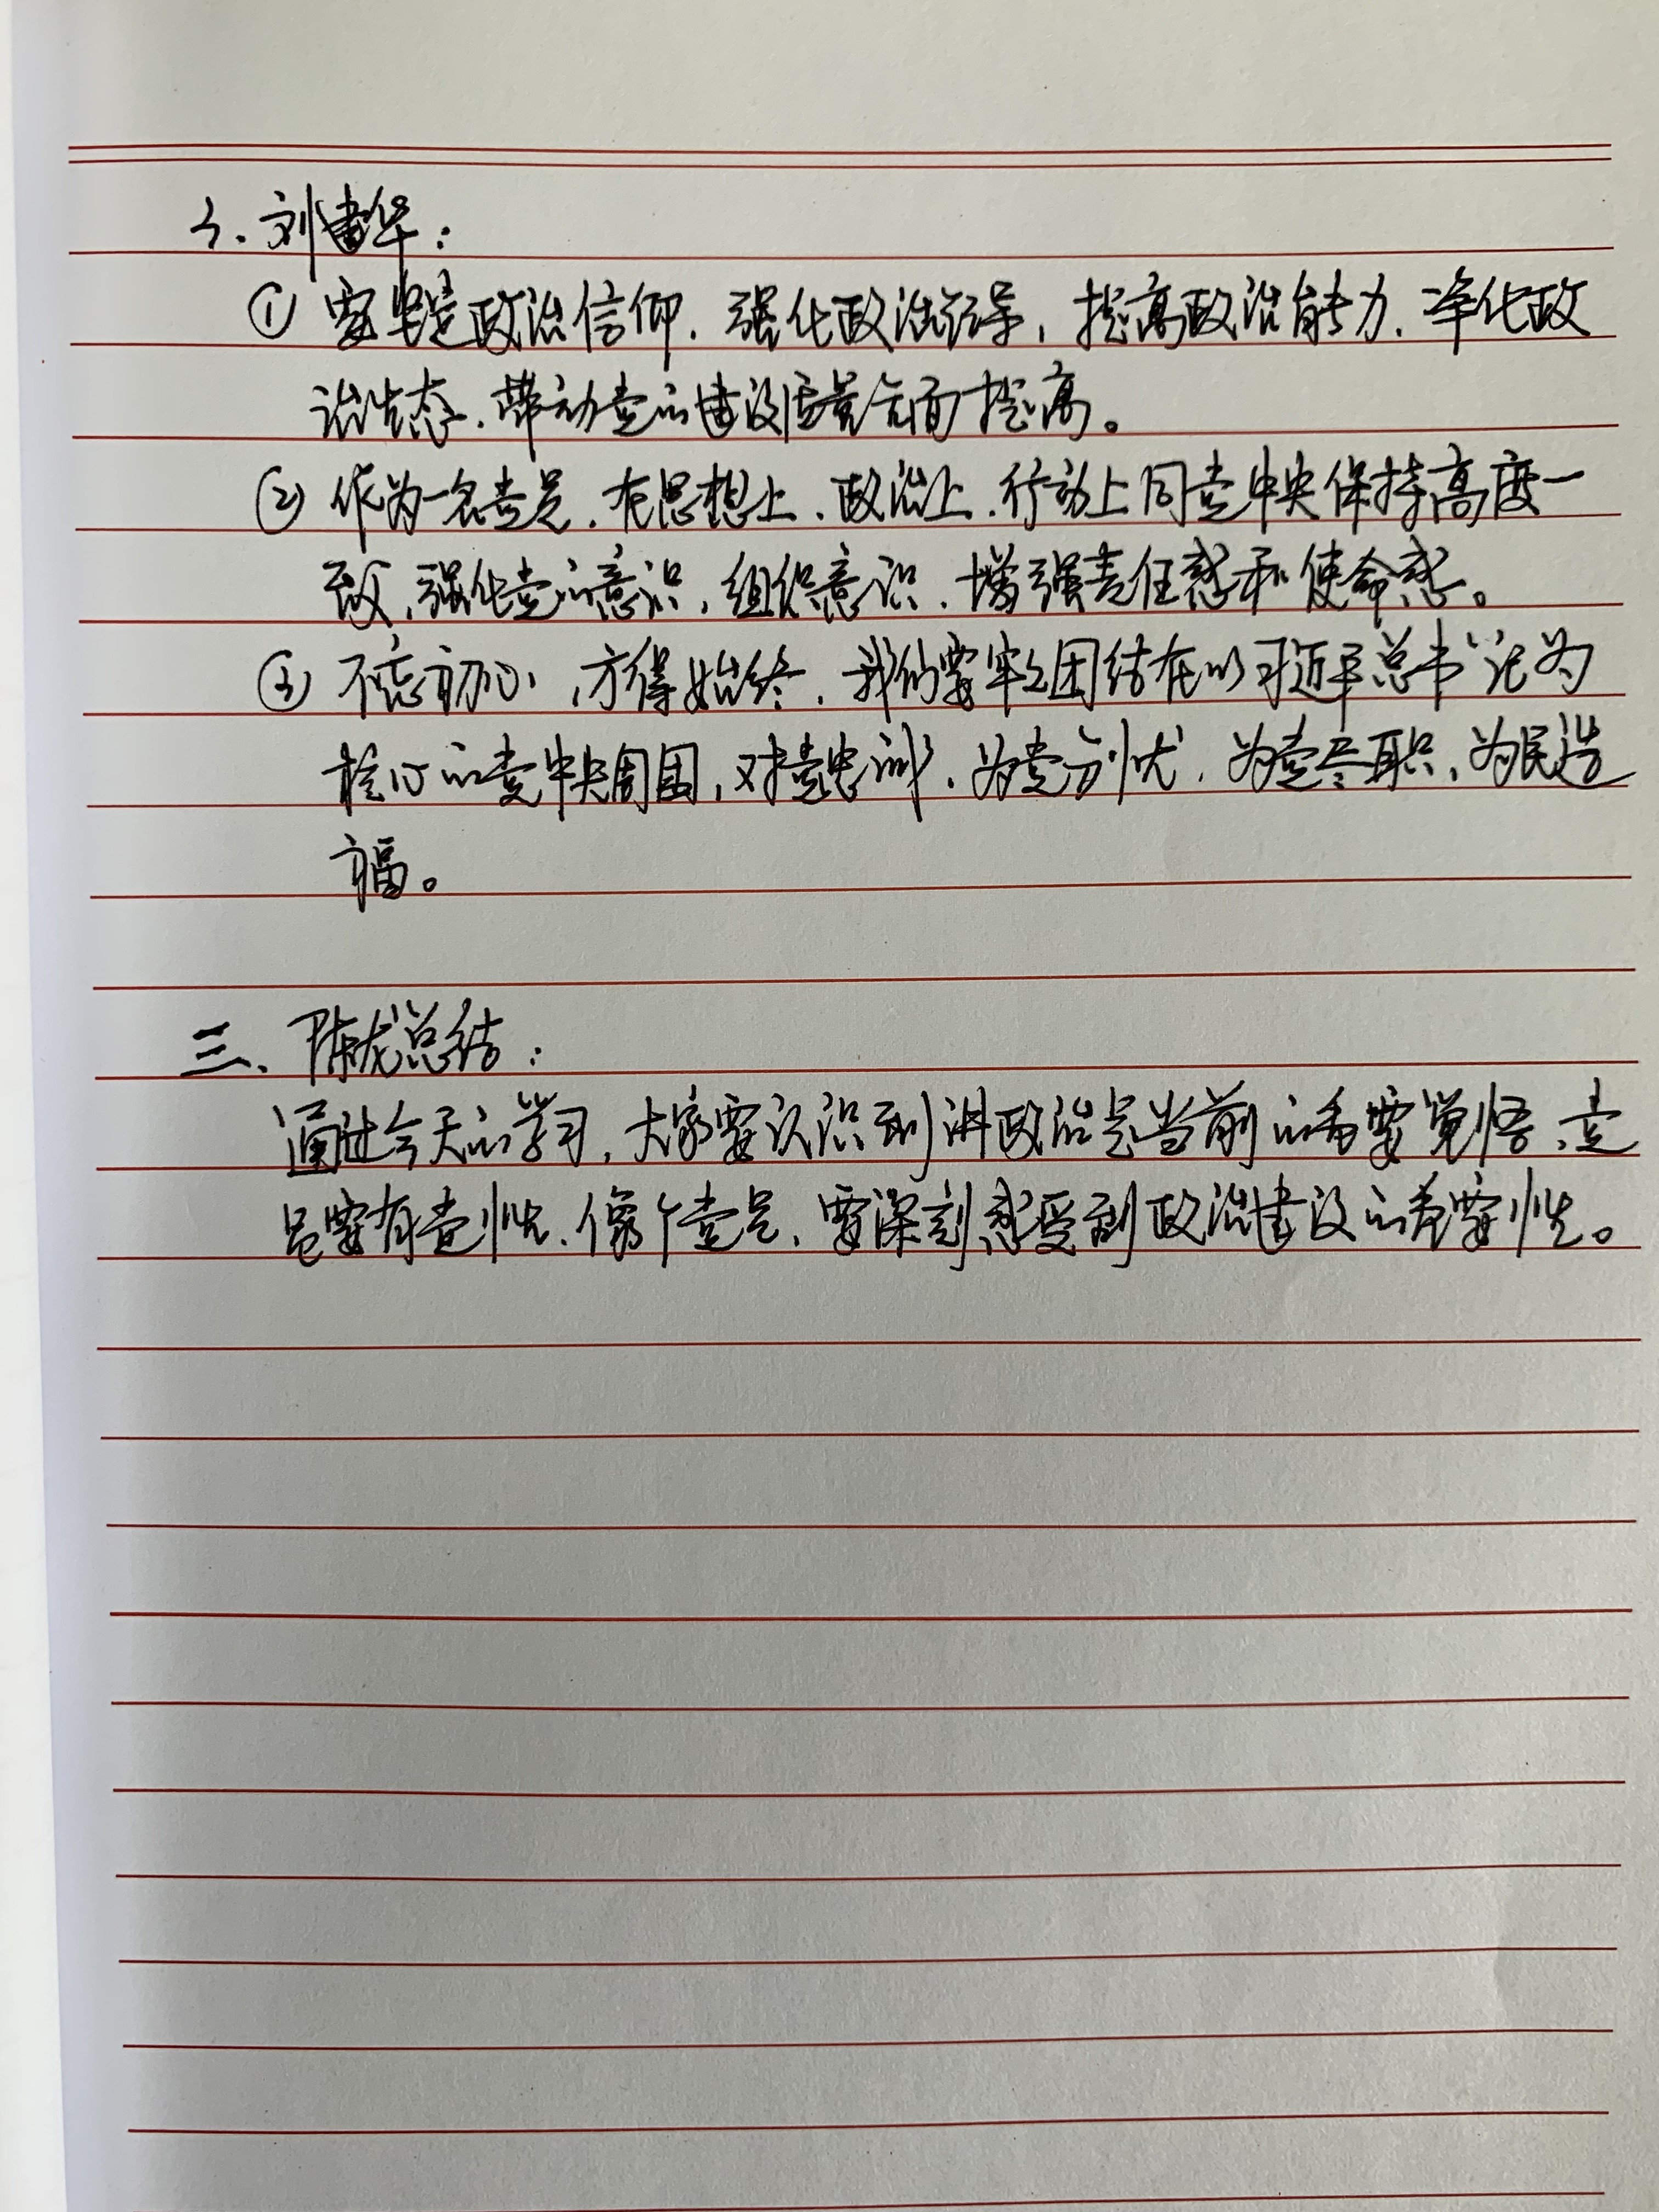 3、刘建华：
① 要坚定政治信仰、强化政治领导、提高政治能力、净化政
治生态、带动党的建设质量全面提高。
② 作为一名党员，在思想上、政治上、行动上同党中央保持高度一
致，强化党的意识，组织意识，增强责任感和使命感。
③ 不忘初心，方得始终，我们要牢牢团结在以习近平总书记为
核心的党中央周围，对党忠诚、为党分忧，为党尽职、为民造
福。
三、陈龙总结：
通过今天的学习，大家要认识到讲政治是当前的首要觉悟、党
员要有党性、像个党员，要深刻感受到政治建设的重要性。